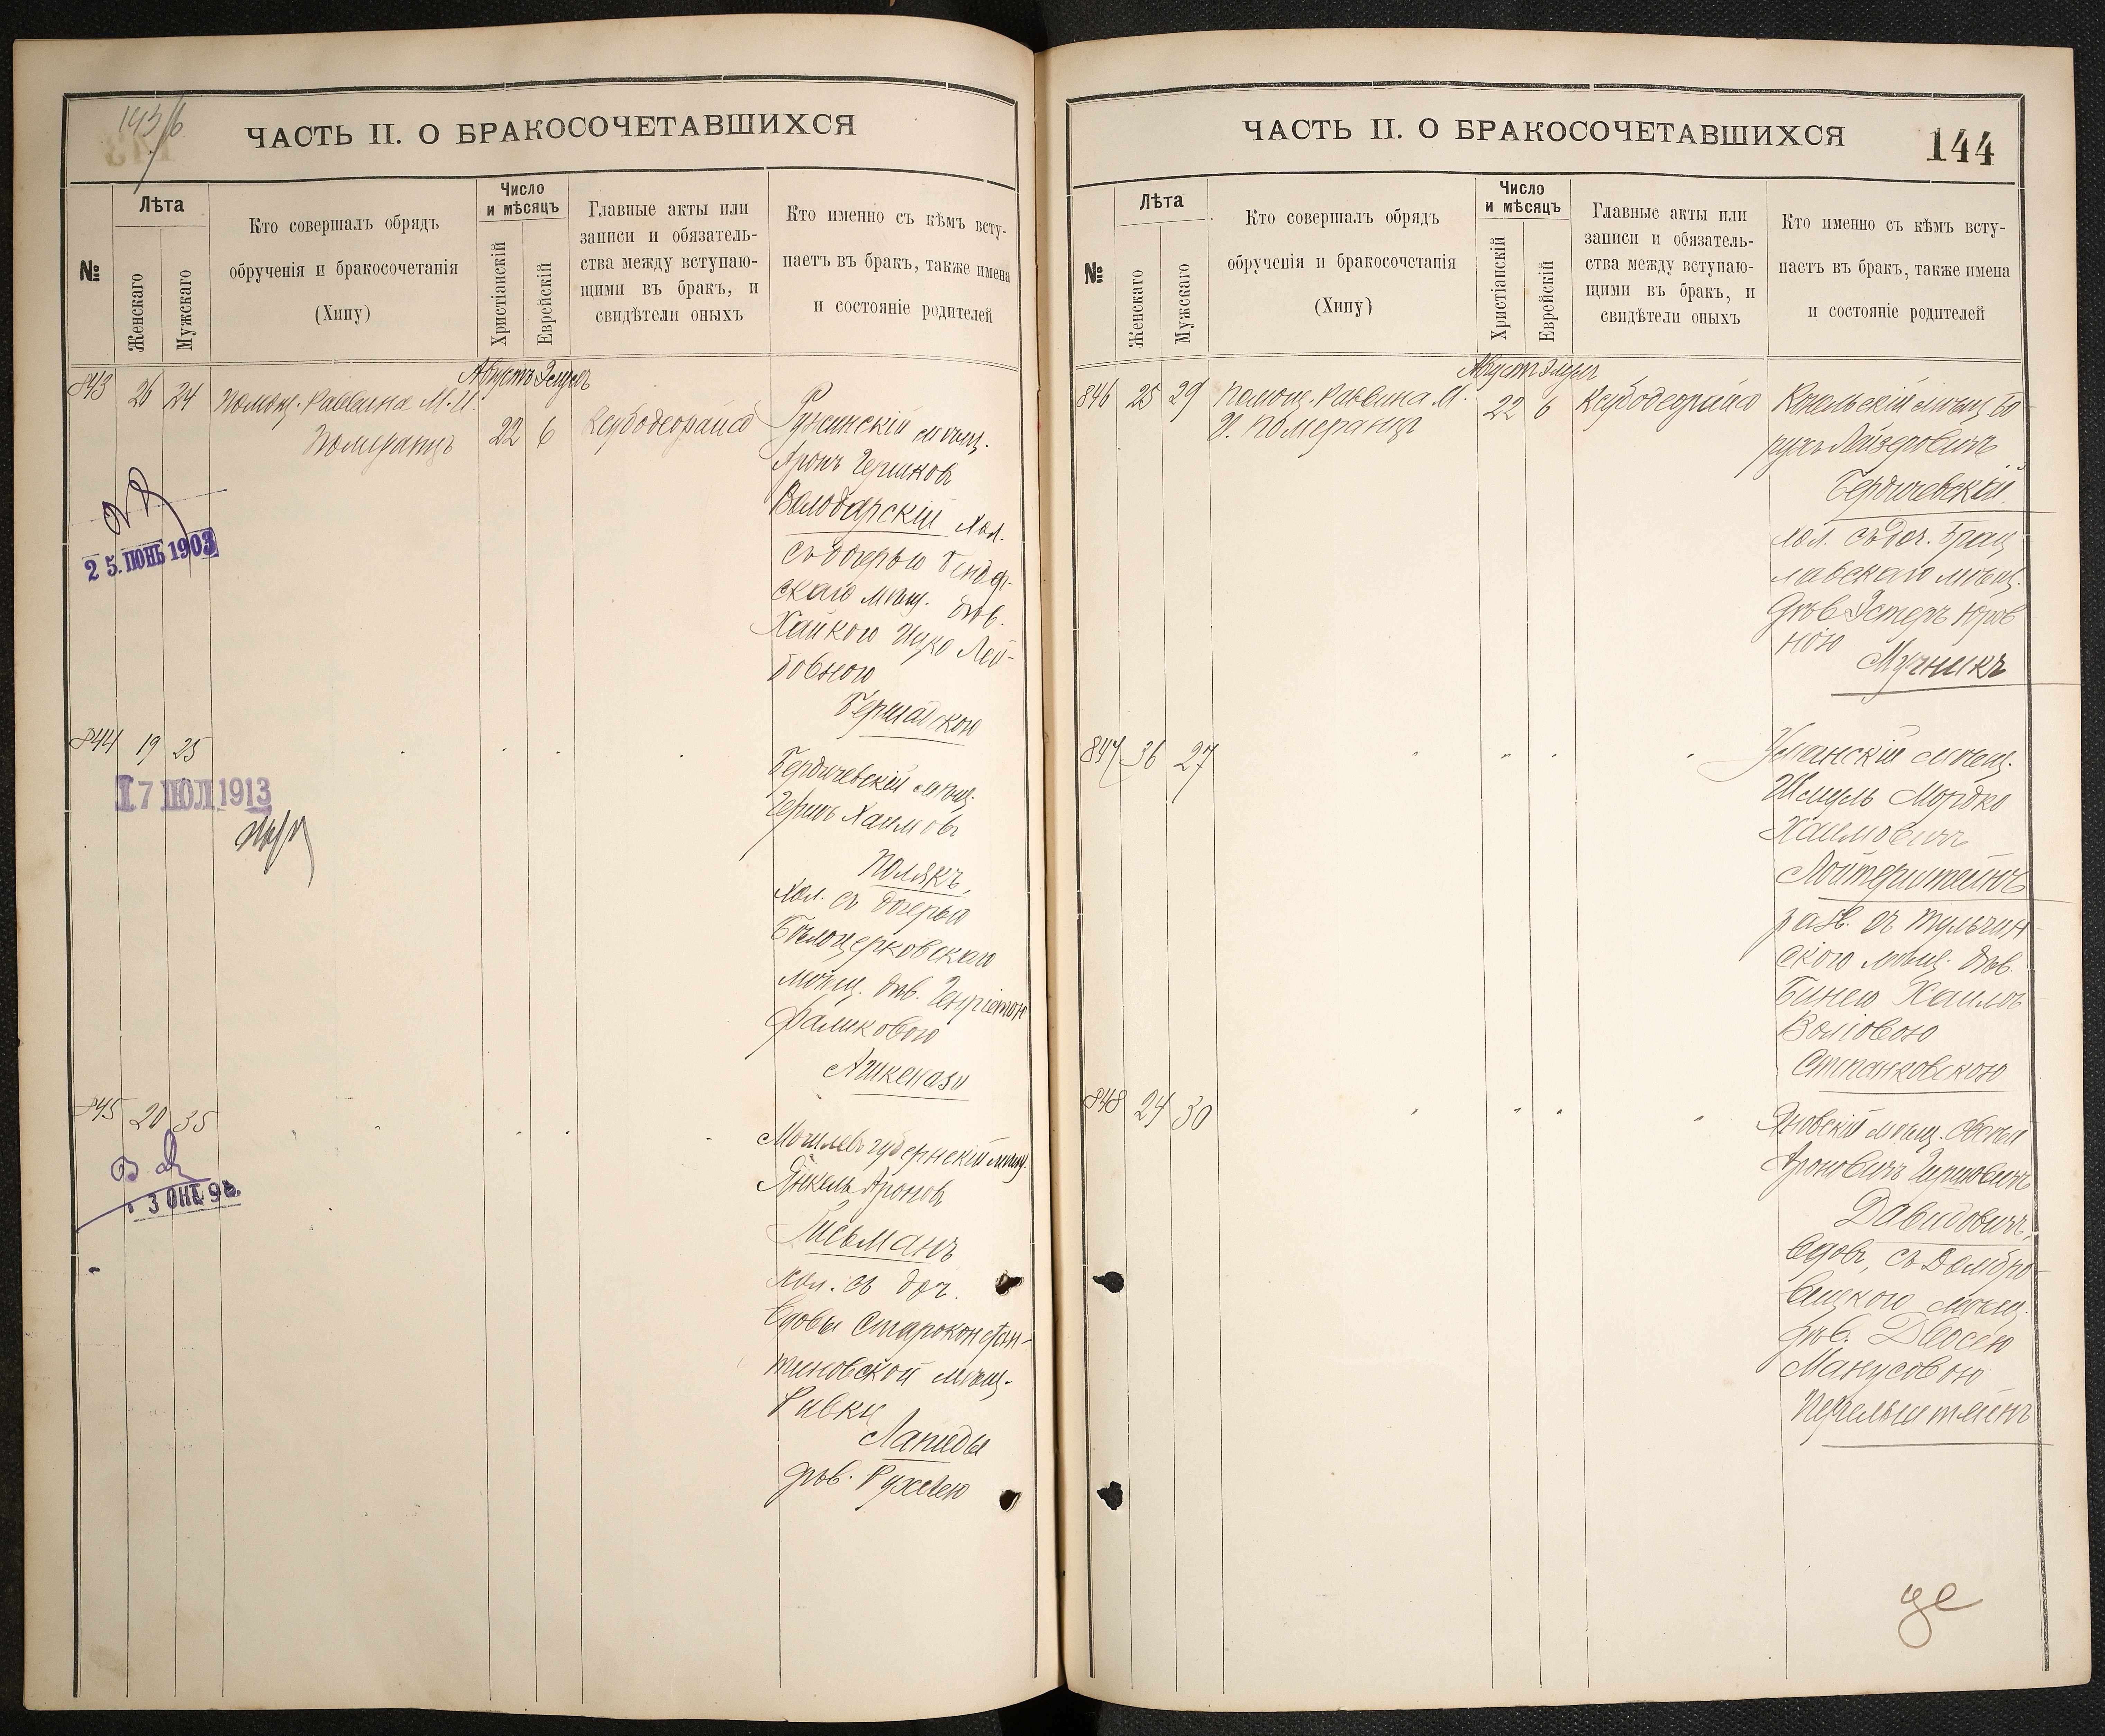 143/б.
ЧАСТЬ II. О БРАКОСОЧЕТАВШИХСЯ
№
Лѣта
Женскаго
Мужскаго
Кто совершалъ обрядъ
обрученія и бракосочетанія
(Хипу)
Число
и мѣсяцъ
Христіанскій
Еврейскій
Главные акты или
записи и обязатель-
ства между вступаю-
щими въ бракъ, и
свидѣтели оныхъ
Кто именно съ кѣмъ всту-
паетъ въ бракъ, также имена
и состояніе родителей
Августъ Элулъ
843 26 24 Помощ. Раввина М. И.
Померанцъ
22 6 Ксубодеорайсо
Ружинскій мѣщ.
Аронъ Гершковъ
Володарскій хол.
съ дочерью Бендер-
скаго мѣщ. дѣв.
Хайкою
Лей-
бовною
Бершадскою
25. ІЮНЬ 1903
844 19 25
Бердичевскій мѣщ.
Гершъ Хаимовъ
Полякъ,
хол. съ дочерью
Бѣлоцерковскаго
мѣщ. дѣв. Генріетою
Фаликовою
Ашкенази
17 ІЮЛ 1913
845 20 35
Могилевъ губернскій мѣщ.
Янкель Ароновъ
Письманъ
хол. съ доч.
вдовы Староконстан-
тиновской мѣщ.
Ривки
Лапиды
дѣв. Рухлею
ЧАСТЬ II. О БРАКОСОЧЕТАВШИХСЯ
144
№
Лѣта
Женскаго
Мужскаго
Кто совершалъ обрядъ
обрученія и бракосочетанія
(Хипу)
Число
и мѣсяцъ
Христіанскій
Еврейскій
Главные акты или
записи и обязатель-
ства между вступаю-
щими въ бракъ, и
свидѣтели оныхъ
Кто именно съ кѣмъ всту-
паетъ въ бракъ, также имена
и состояніе родителей
Августъ Элулъ
846 25 29 Помощ. Раввина М.
И. Померанцъ
22 6 Ксубодеорайсо
Конельскій мѣщ. Бо
рухъ Лейзеровичъ
Бердичевскій
хол. съ доч. Брац
лавскаго мѣщ.
дѣв. Эстеръ
ною
Мучникъ
847 36 27
Уманскій мѣщ.
Шмуль Мордко
Хаимовичъ
Лойтерштейнъ
разв. съ Тульчин
скою мѣщ. дѣв.
Бинею Хаимъ
Волѣовою
848 24 30
Яновскій мѣщ. Овсѣй
Ароновичъ Гершковичъ
Давидовичъ,
вдов., съ Домбро
вицкою мѣщ.
дѣв. Двосею
Манусовою
Перельштейнъ